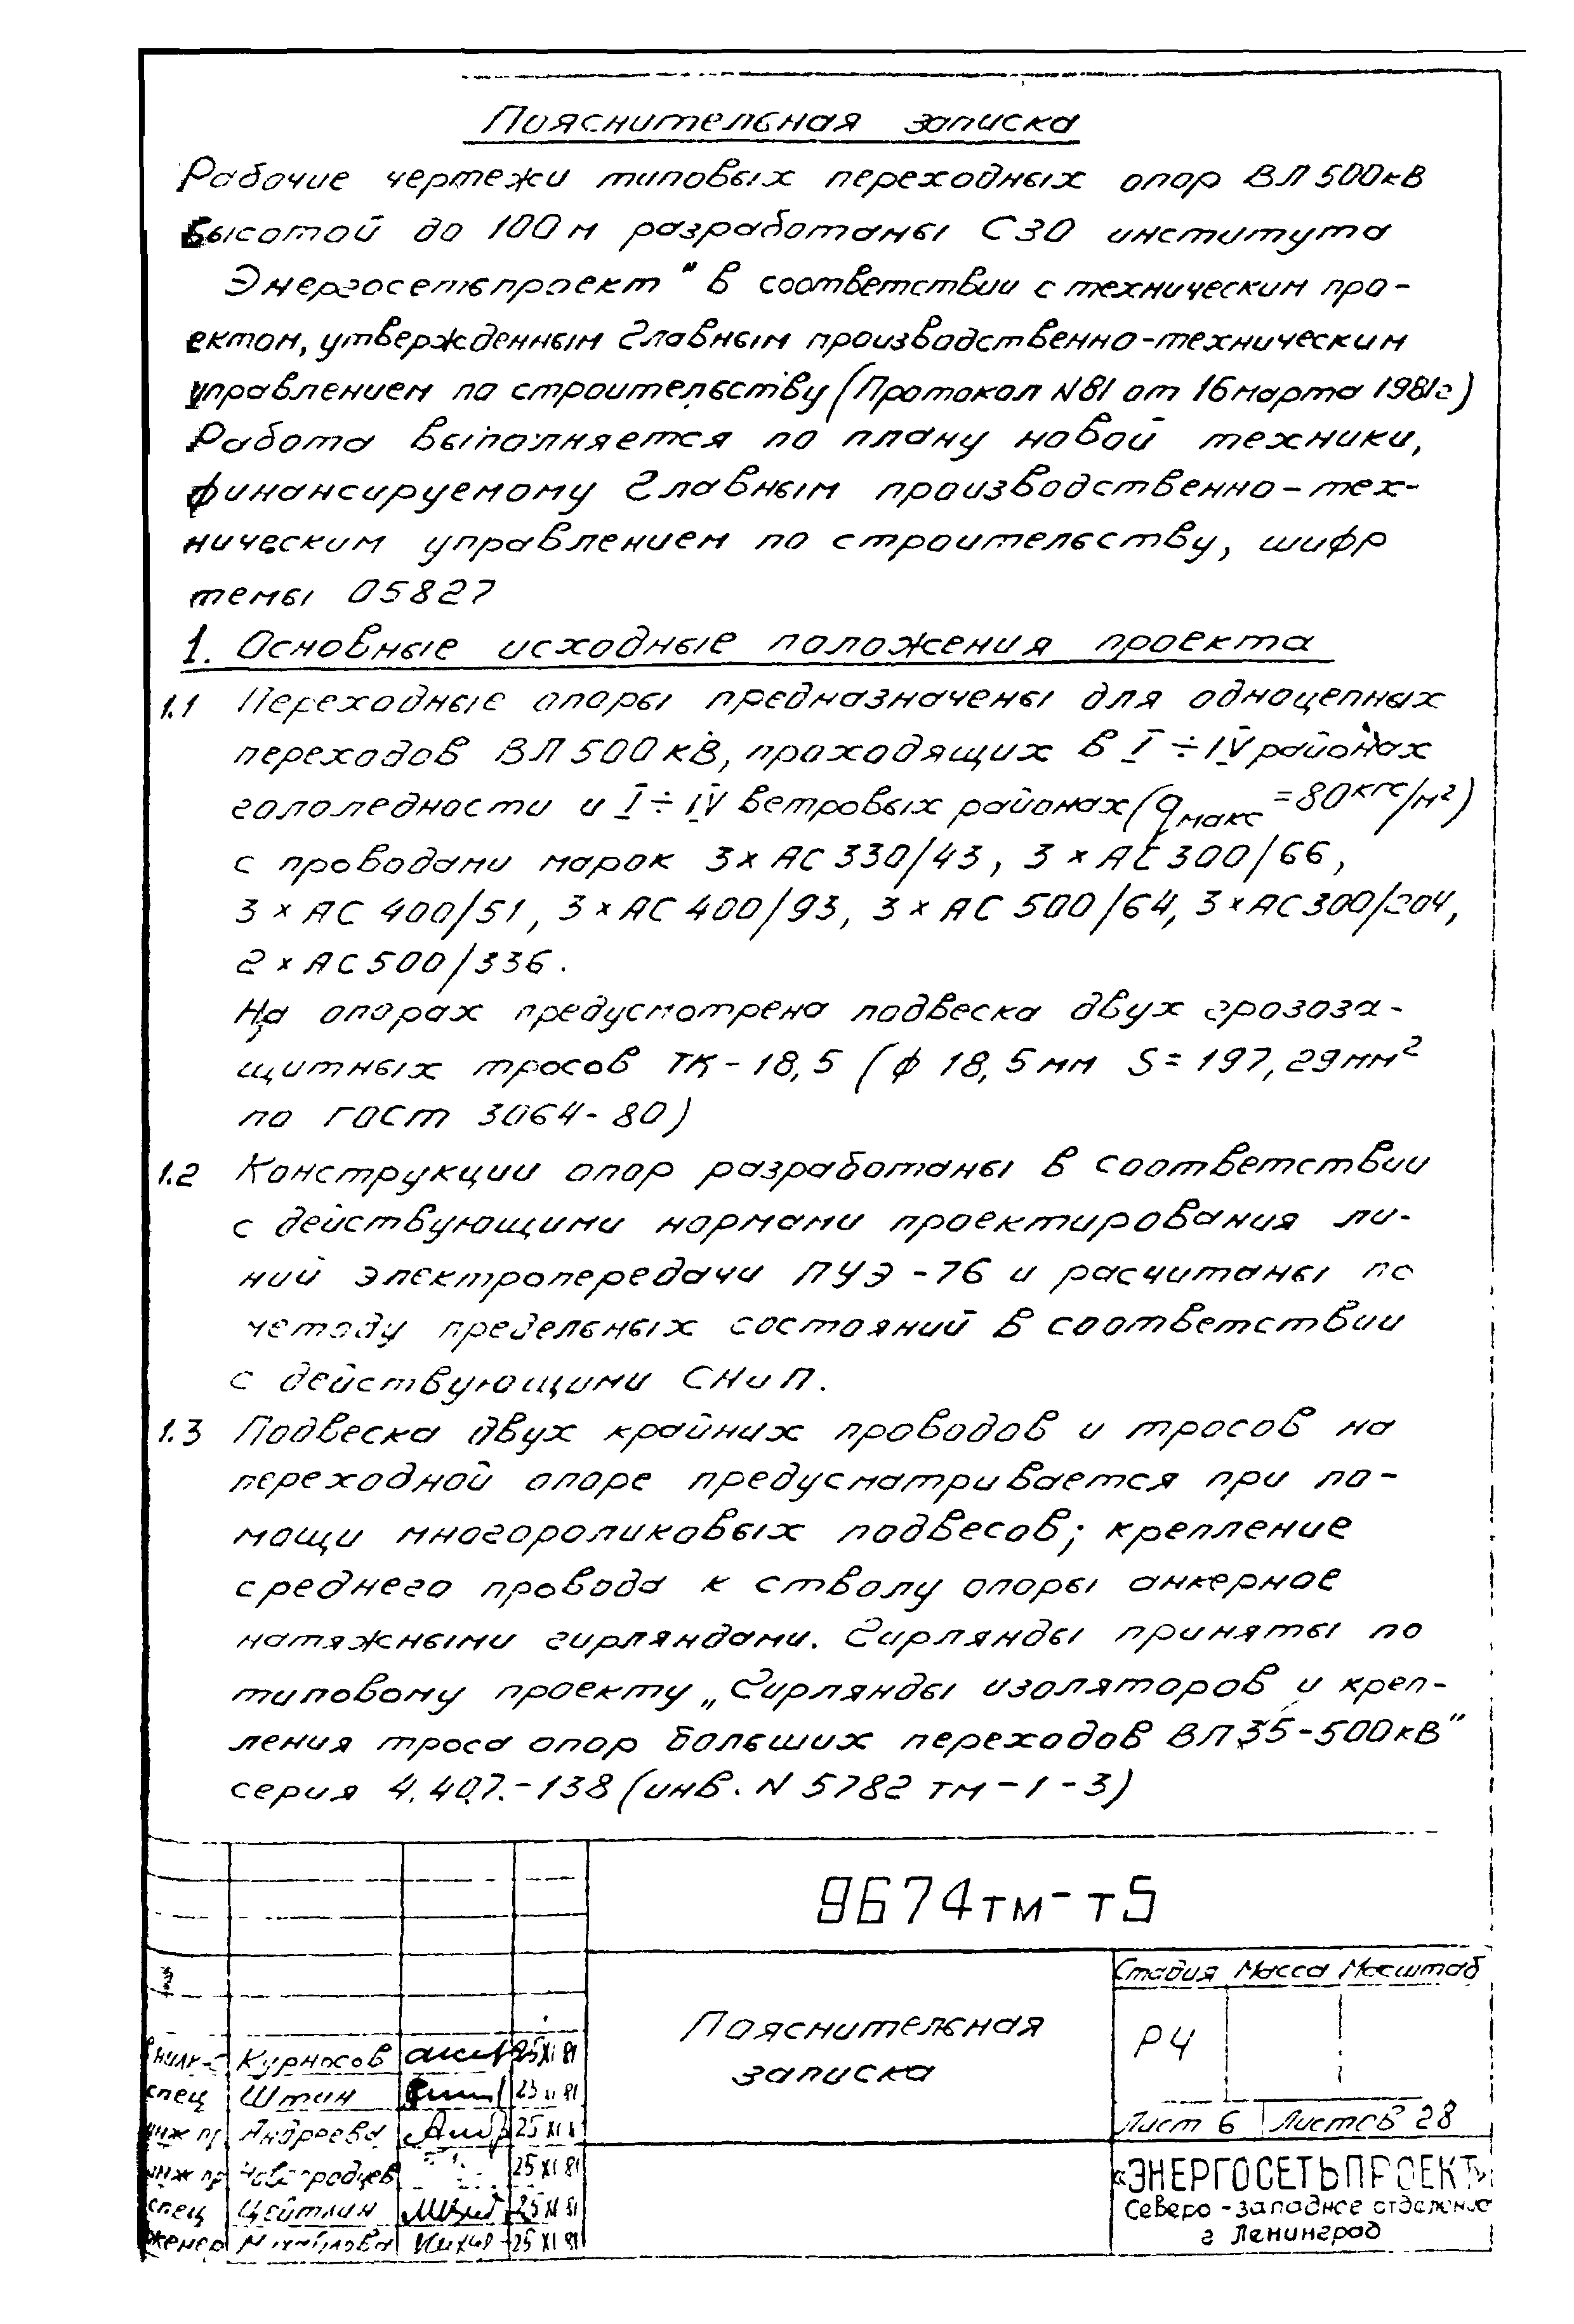 Пояснительная записка
Рабочие чертежи типовых переходных опор ВЛ 500кВ
высотой до 100 м разработаны СЗО института
Энергосетьпроект" в соответствии с техническим про-
ектом, утвержденным Главным производственно-техническим
управлением по строительству (Протокол N81 от 16 марта 1981г)
Работа выполняется по плану новой техники,
финансируемому Главным производственно-тех-
ническим управлением по строительству, шифр
темы 05827
1. Основные исходные положения проекта
1.1 Переходные опоры предназначены для одноцепных
переходов ВЛ 500 кВ, проходящих в I ÷ IV районах
гололедности и I ÷ IV ветровых районах (qмакс = 80 кгс/м²)
с проводами марок 3 × АС 330/43, 3 × АС 300/66,
3 × АС 400/51, 3 × АС 400/93, 3 × АС 500/64, 3 × АС 300/204,
2 × АС 500/336.
На опорах предусмотрена подвеска двух грозоза-
щитных тросов ТК-18,5 (ф 18,5 мм S = 197,29 мм²
по ГОСТ 3064-80)
1.2 Конструкции опор разработаны в соответствии
с действующими нормами проектирования ли-
ний электропередачи ПУЭ-76 и расчитаны по
методу предельных состояний в соответствии
с действующими СНиП.
1.3 Подвеска двух крайних проводов и тросов на
переходной опоре предусматривается при по-
мощи многороликовых подвесов; крепление
среднего провода к стволу опоры анкерное
натяжными гирляндами. Гирлянды приняты по
типовому проекту „Гирлянды изоляторов и креп-
ления троса опор больших переходов ВЛ 35-500 кВ"
серия 4.407.-138 (инв. N 5782 тм-1-3)
9674тм-т5
Стадия Масса Масштаб
Пояснительная
записка
РЧ
Лист 6 Листов 28
«ЭНЕРГОСЕТЬПРОЕКТ»
Северо-западное отделение
г Ленинград
Курносов 25 XI 81
спец Штин 25 11 81
инж пр Андреева 25 XI
инж пр 25 XI 81
спец Цейтлин 25 XI 81
женер Михайлова 25 XI 81